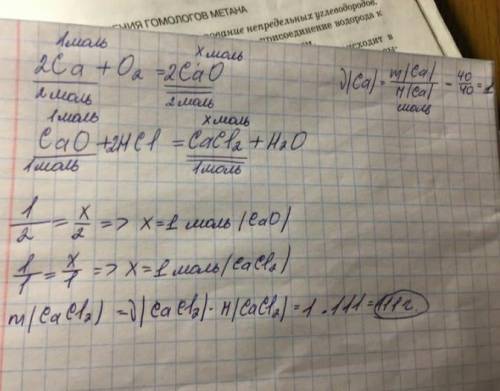 ЕНИЯ ГОМОЛОГОВ МЕТАНА
ование непредельных углеводородов.
присоединение водорода к
исходит в
1моль хмоль
2Ca + O₂ = 2CaO
2моль 2моль
ν(Ca) = m(Ca) / M(Ca) = 40/40 = 1
моль
1моль хмоль
CaO + 2HCl = CaCl₂ + H₂O
1моль 1моль
1/2 = x/2 => x = 1 моль (CaO)
1/1 = x/1 => x = 1 моль (CaCl₂)
m(CaCl₂) = ν(CaCl₂) · M(CaCl₂) = 1 · 111 = 111г.